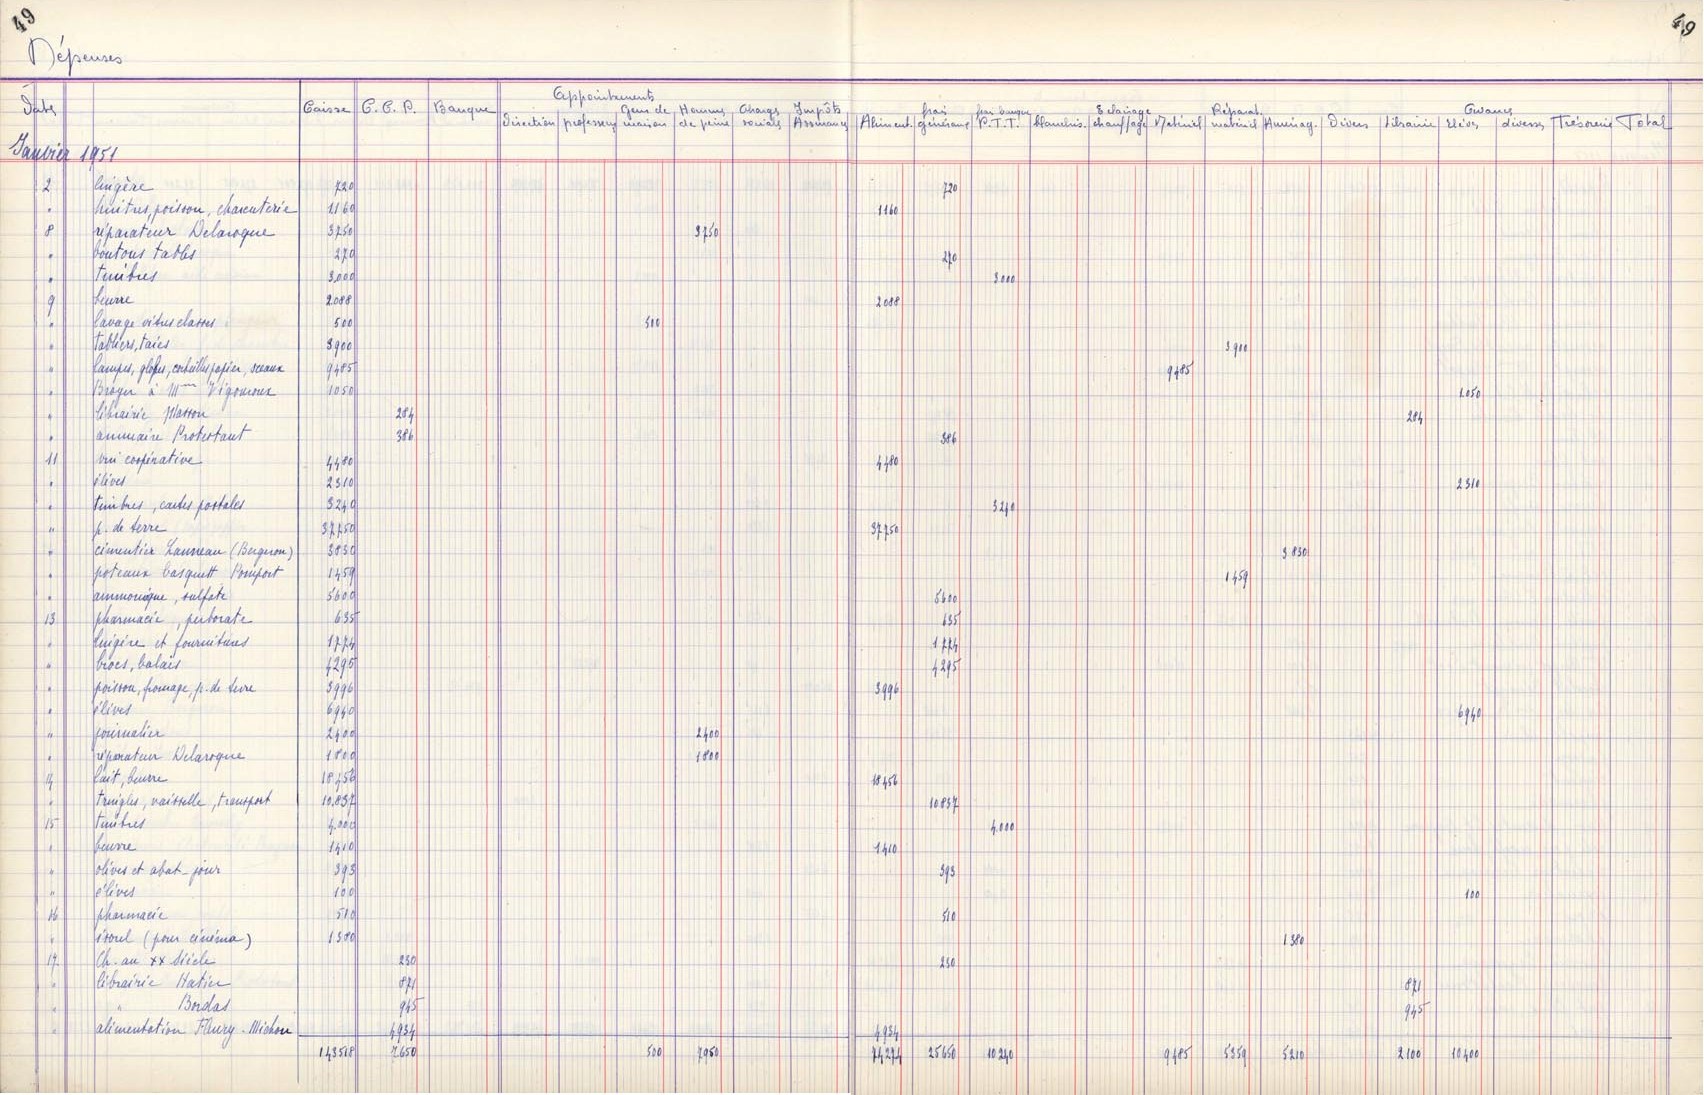 49 49
Dépenses
Dates Caisse C.C.P. Banque Appointements Direction professeurs Gens de maison Homme de peine Charges sociales Impôts Assurances Aliment. frais généraux frais banque P.T.T. blanchis. Eclairage chauffage Matériel Réparat. matériel Aménag. Divers Librairie Avances élèves diverses Trésorerie Total
Janvier 1951
2 lingère 720 720
" huitres, poisson, charcuterie 1160 1160
8 réparateur Delaroque 3750 3750
" boutons tables 270 270
" timbres 3.000 3.000
9 beurre 2088 2088
" lavage vitres classes 500 500
" tabliers, taies 3900 3900
" lampes, globes, corbeilles papier, sceaux 9485 9485
" Broyer à Mme Vigouroux 1050 1050
" librairie Masson 284 284
" annuaire Protestant 386 386
11 vin coopérative 4480 4480
" élèves 2310 2310
" timbres, cartes postales 3240 3240
" p. de terre 37.750 37750
" cimentier Lanneau (Bergnon) 3830 3830
" poteaux basquett Pomport 1459 1459
" ammoniaque, sulfate 5600 5600
13 pharmacie, perborate 635 635
" lingère et fournitures 1774 1774
" brocs, balais 4295 4295
" poisson, fromage, p. de terre 3996 3996
" élèves 6940 6940
" journalier 2400 2400
" réparateur Delaroque 1800 1800
14 lait, beurre 18456 18456
" tringles, vaisselle, transport 10.837 10837
15 timbres 4.000 4.000
" beurre 1410 1410
" olives et abat-jour 393 393
" élèves 100 100
16 pharmacie 510 510
" isorel (pour cinéma) 1380 1380
17 Ch. au XX siècle 230 230
" librairie Hatier 871 871
" " Bordas 945 945
" alimentation Fleury-Michon 4934 4934
143518 7650 500 7950 74274 25650 10240 9485 5359 5210 2100 10400